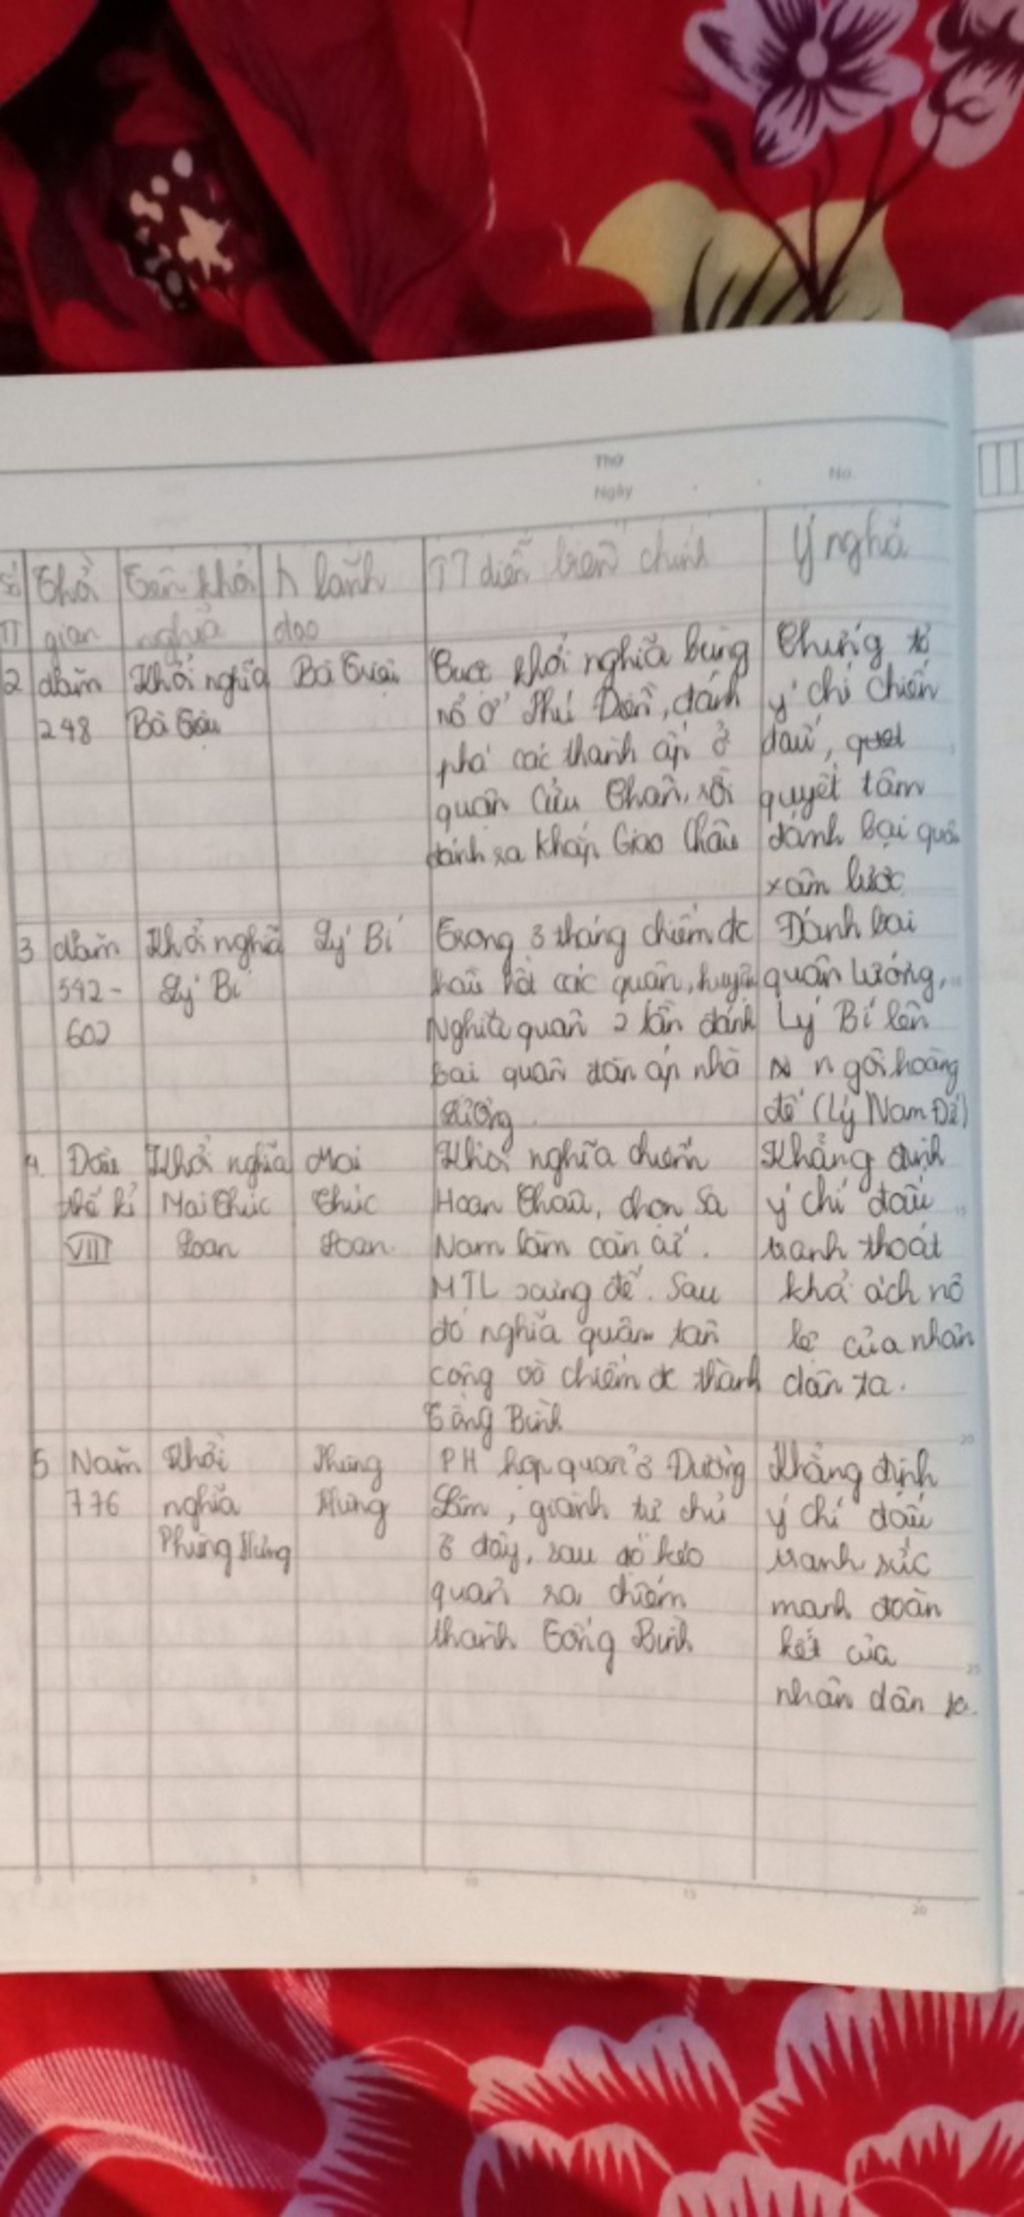 Thứ
Ngày
No.
Số TT
Thời gian
Tên khởi nghĩa
lãnh đạo
TT diễn biến chính
Ý nghĩa
2
Năm 248
Khởi nghĩa Bà Triệu
Bà Triệu
Cuộc khởi nghĩa bùng
nổ ở Phú Điền, đánh
phá các thành ấp ở
quận Cửu Chân, rồi
đánh ra khắp Giao Châu
Chứng tỏ
ý chí chiến
đấu,
quyết tâm
đánh bại quân
xâm lược
3
Năm 542 - 602
Khởi nghĩa Lý Bí
Lý Bí
Trong 3 tháng chiếm đc
hầu hết các quận, huyện
Nghĩa quân 2 lần đánh
bại quân đàn áp nhà
Lương.
Đánh bại
quân Lương,
Lý Bí lên
ngôi hoàng
đế (Lý Nam Đế)
4.
Đầu thế kỉ VIII
Khởi nghĩa Mai Thúc Loan
Mai Thúc Loan.
Khởi nghĩa chiếm
Hoan Châu, chọn Sa
Nam làm căn cứ.
MTL xưng đế. Sau
đó nghĩa quân tấn
công và chiếm đc thành
Tống Bình
Khẳng định
ý chí đấu
tranh thoát
khỏi ách nô
lệ của nhân
dân ta.
5
Năm 776
Khởi nghĩa Phùng Hưng
Phùng Hưng
PH họp quân ở Đường
Lâm, giành tự chủ
ở đây, sau đó kéo
quân ra chiếm
thành Tống Bình
Khẳng định
ý chí đấu
tranh sức
mạnh đoàn
kết của
nhân dân ta.
10
15
20